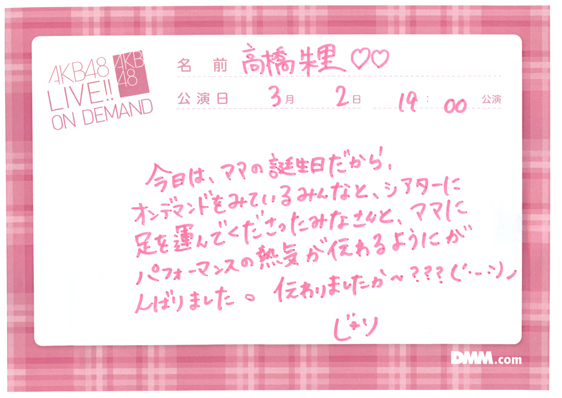 AKB48
LIVE!!
ON DEMAND
AKB
48
名 前 高橋朱里♡♡
公演日 3月 2日 19:00 公演
今日は、ママの誕生日だから、
オンデマンドをみているみんなと、シアターに
足を運んでくださったみなさんと、ママに
パフォーマンスの熱気が伝わるようにが
んばりました。伝わりましたか〜???(´・ー・`)ノ
じゅり
DMM.com